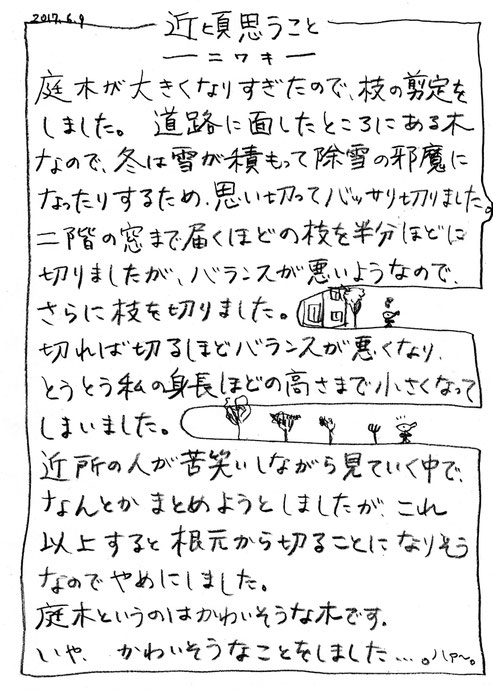 2017.6.9
近頃思うこと
ーニワキー
庭木が大きくなりすぎたので、枝の剪定を
しました。 道路に面したところにある木
なので、冬は雪が積もって除雪の邪魔に
なったりするため、思い切ってバッサリ切りました。
二階の窓まで届くほどの枝を半分ほどに
切りましたが、バランスが悪いようなので、
さらに枝を切りました。
切れば切るほどバランスが悪くなり、
とうとう私の身長ほどの高さまで小さくなって
しまいました。
近所の人が苦笑いしながら見ていく中で、
なんとかまとめようとしましたが、これ
以上すると根元から切ることになりそう
なのでやめにしました。
庭木というのはかわいそうな木です。
いや、かわいそうなことをしました…。ハァ〜。